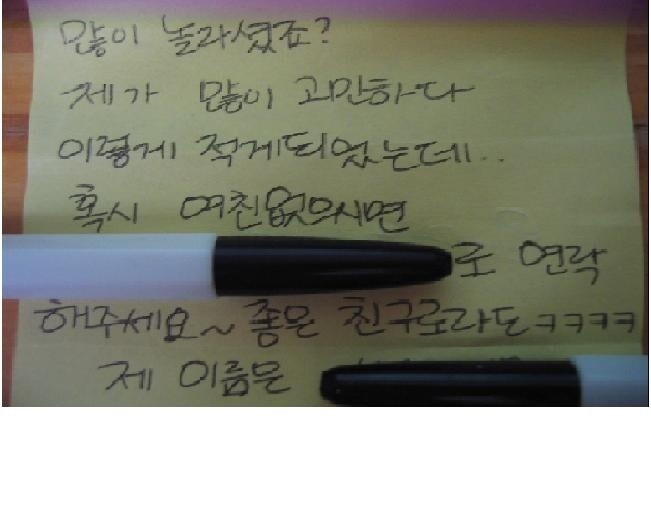 많이 놀라셨죠?
제가 많이 고민하다
이렇게 적게되었는데..
혹시 여친없으시면
로 연락
해주세요~ 좋은 친구로라도ㅋㅋㅋㅋ
제 이름은